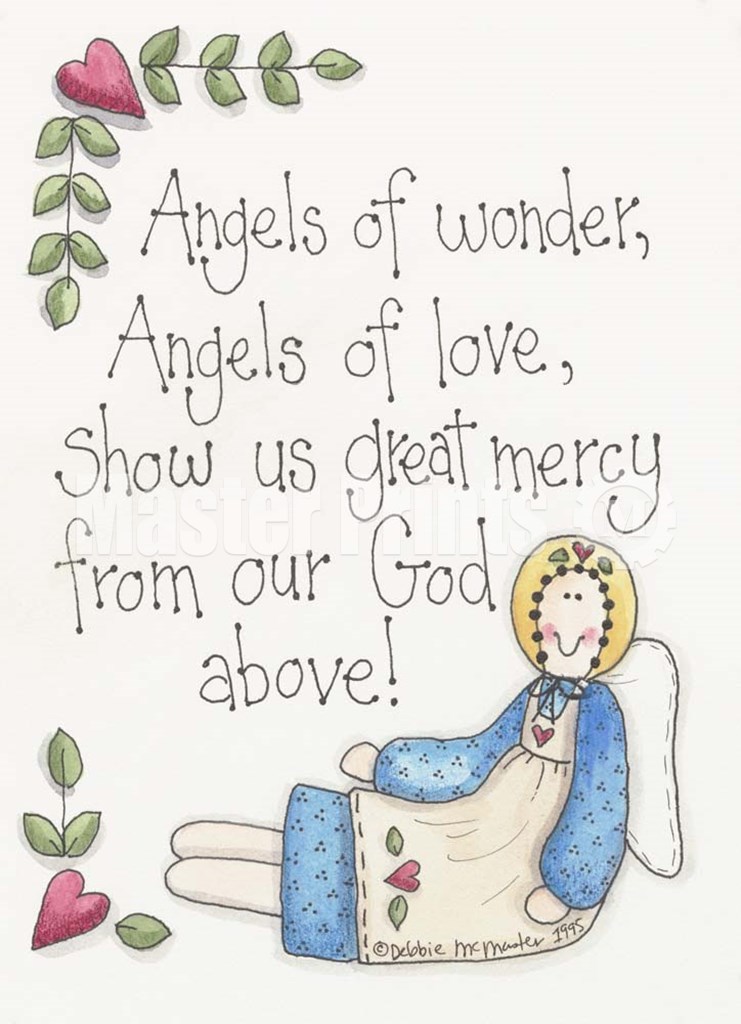 Angels of wonder,
Angels of love,
Show us great mercy
Master Prints
from our God
above!
©Debbie McMaster 1995